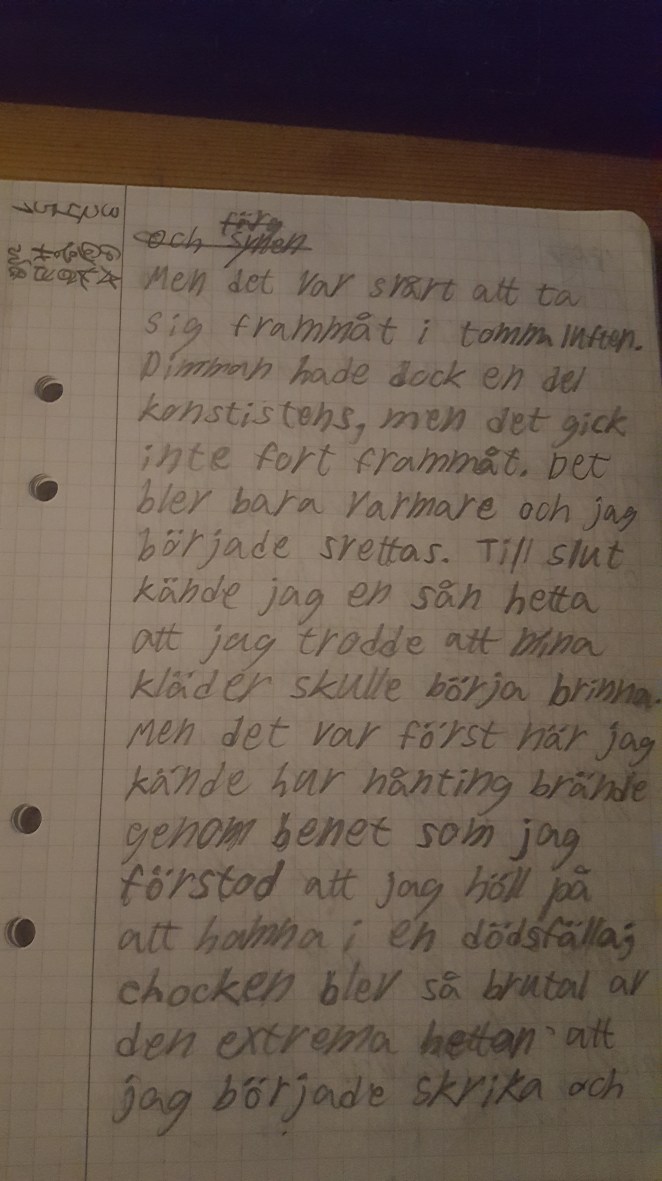 och synen
färg
Men det var svårt att ta
sig frammåt i tomma luften.
Dimman hade dock en del
konstistens, men det gick
inte fort frammåt. Det
blev bara varmare och jag
började svettas. Till slut
kände jag en sån hetta
att jag trodde att mina
kläder skulle börja brinna.
Men det var först när jag
kände hur nånting brände
genom benet som jag
förstod att jag höll på
att hamna i en dödsfälla;
chocken blev så brutal av
den extrema hettan att
jag började skrika och